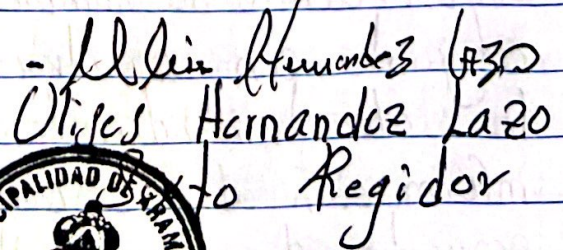 - Ulises Hernandez Lazo
Ulises Hernandez Lazo
Sexto Regidor
CIPALIDAD DE XRAM